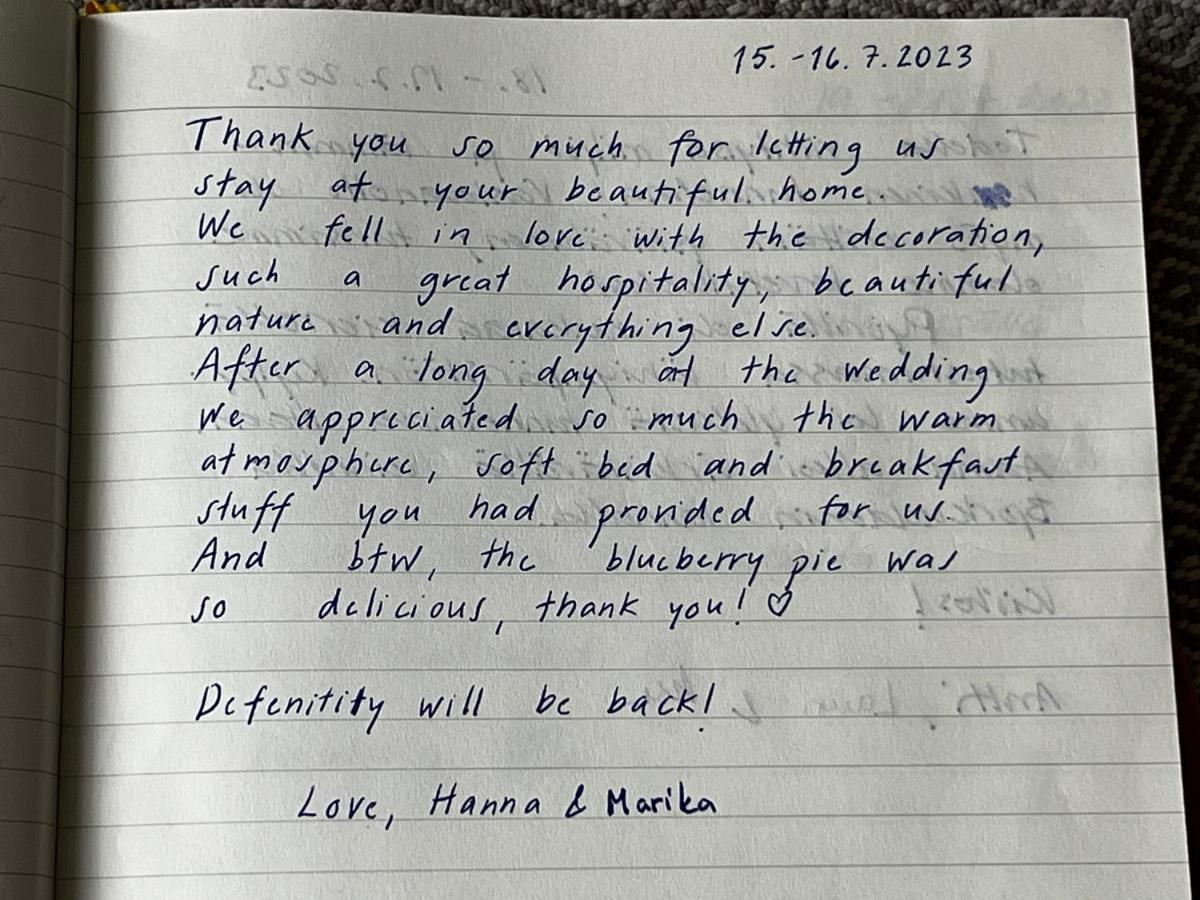 15.-16.7.2023
Thank you so much for letting us
stay at your beautiful home.
We fell in love with the decoration,
such a great hospitality, beautiful
nature and everything else.
After a long day at the wedding
we appreciated so much the warm
atmosphere, soft bed and breakfast
stuff you had provided for us.
And btw, the blueberry pie was
so delicious, thank you! ♡
Defenitity will be back!
Love, Hanna & Marika